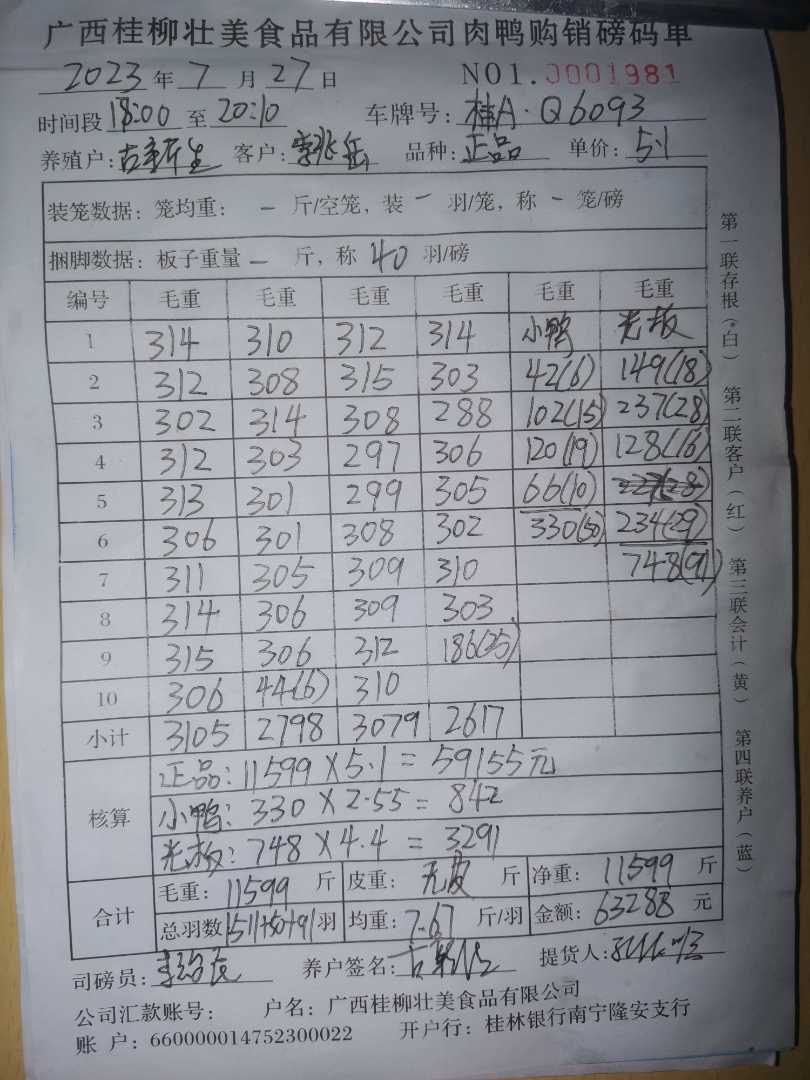 广西桂柳壮美食品有限公司肉鸭购销磅码单
2023年7月27日 NO1.0001981
时间段 18:00 至 20:10 车牌号: 桂A·Q6093
养殖户: 客户: 李兆岳 品种: 正品 单价: 5.1
装笼数据: 笼均重: - 斤/空笼, 装 - 羽/笼, 称 - 笼/磅
捆脚数据: 板子重量 - 斤, 称 40 羽/磅
编号 毛重 毛重 毛重 毛重 毛重 毛重
1 314 310 312 314 小鸭 光板
2 312 308 315 303 42(6) 149(18)
3 302 314 308 288 102(15) 237(28)
4 312 303 297 306 120(19) 128(16)
5 313 301 299 305 66(10)
6 306 301 308 302 330(50) 234(29)
7 311 305 309 310 748(91)
8 314 306 309 303
9 315 306 312 186(25)
10 306 44(6) 310
小计 3105 2798 3079 2617
核算 正品: 11599×5.1=59155元
小鸭: 330×2.55=842
光板: 748×4.4=3291
合计 毛重: 11599 斤 皮重: 无皮 斤 净重: 11599 斤
总羽数 1511+50+91 羽 均重: 7.67 斤/羽 金额: 63288 元
司磅员: 养户签名: 提货人:
公司汇款账号: 户名: 广西桂柳壮美食品有限公司
账 户: 660000014752300022 开户行: 桂林银行南宁隆安支行
第一联存根(白) 第二联客户(红) 第三联会计(黄) 第四联养户(蓝)